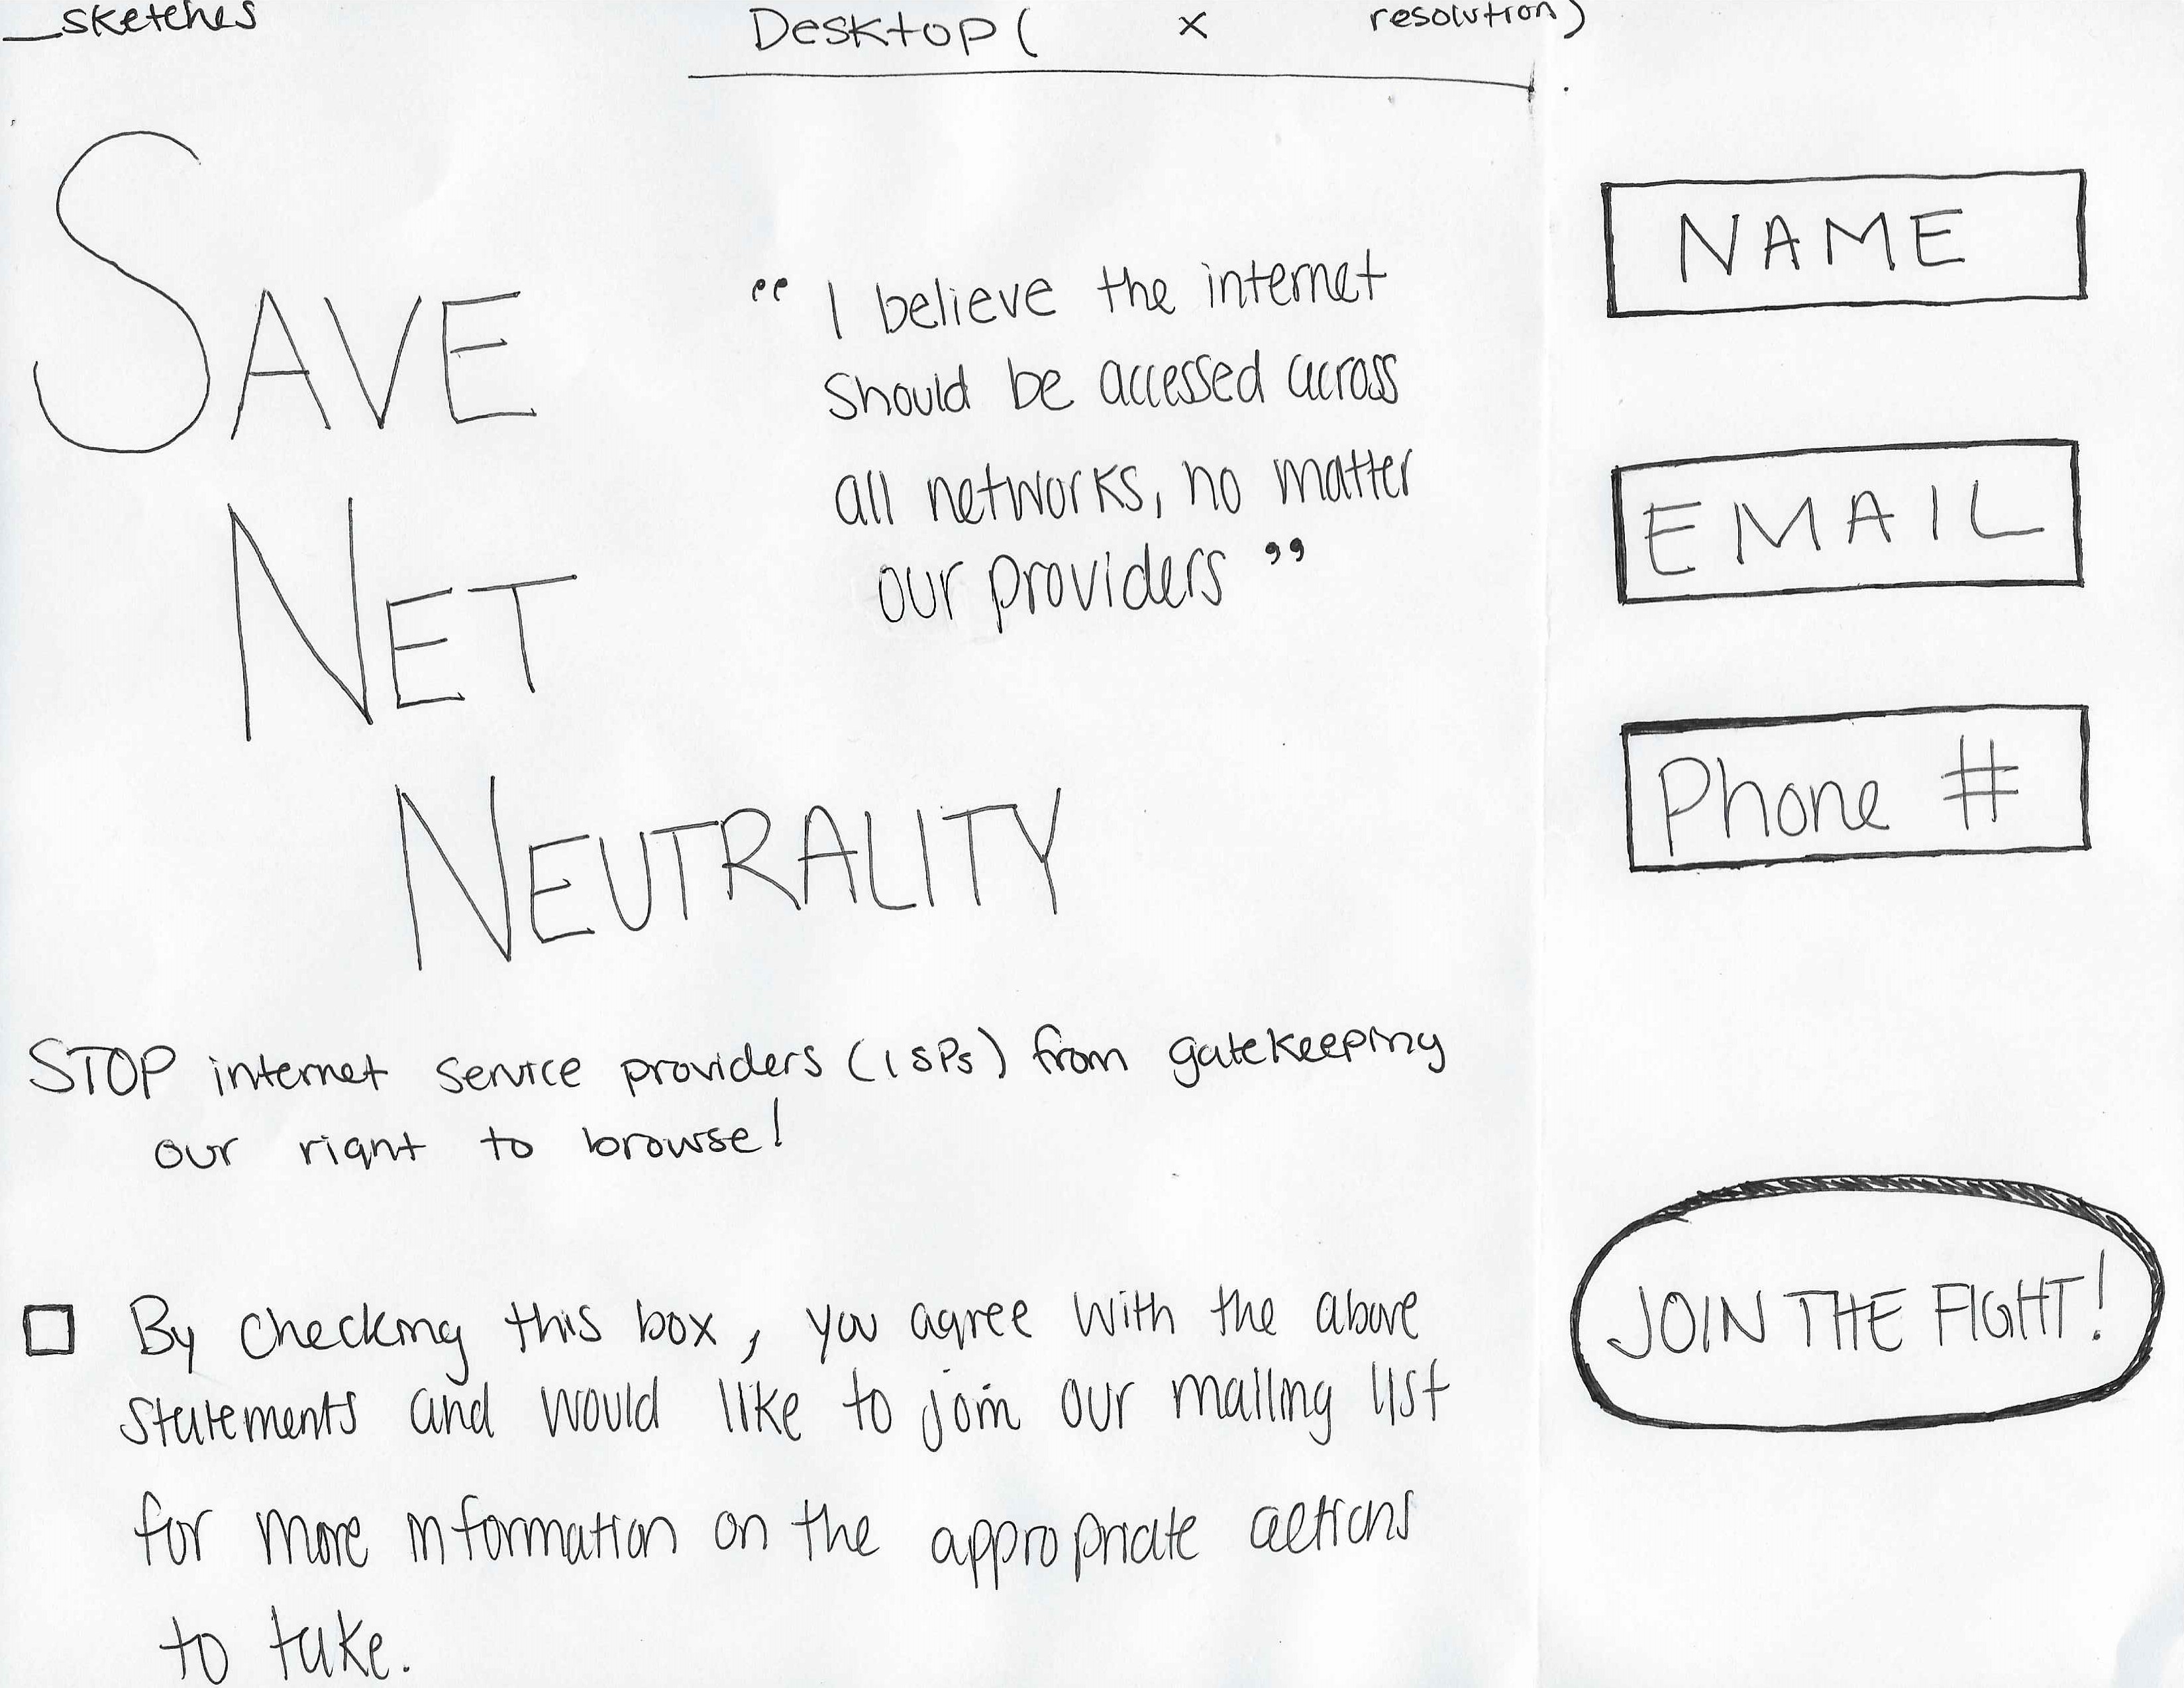 __sketches
Desktop ( x resolution)
SAVE
NET
NEUTRALITY
“ I believe the internet
should be accessed across
all networks, no matter
our providers ”
STOP internet service providers (ISPs) from gatekeeping
our right to browse!
By checking this box, you agree with the above
statements and would like to join our mailing list
for more information on the appropriate actions
to take.
NAME
EMAIL
Phone #
JOIN THE FIGHT!